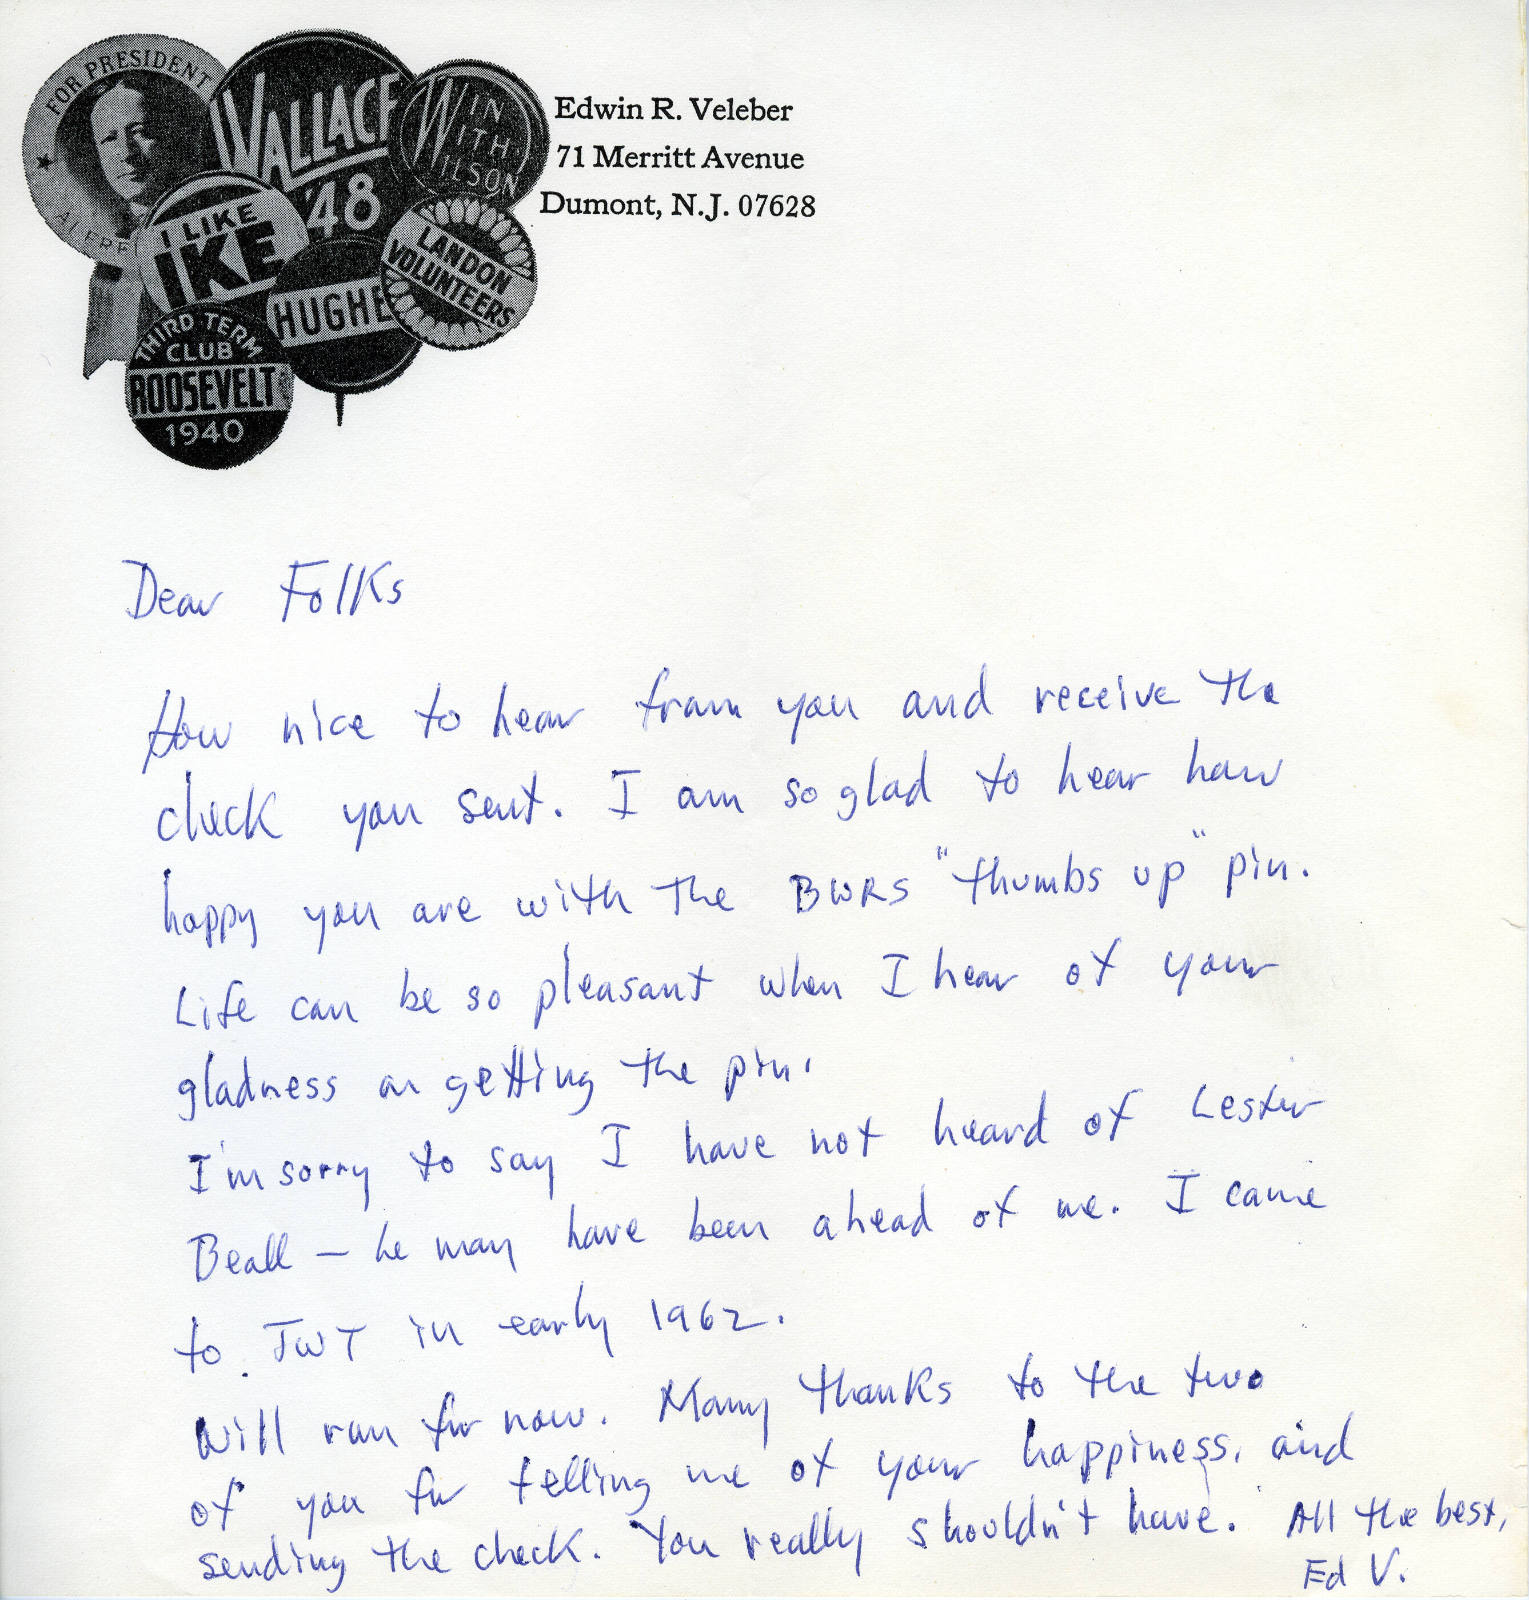 FOR PRESIDENT
ALFRE
WALLACE
'48
WIN
WITH
WILSON
I LIKE
IKE
HUGHE
LANDON
VOLUNTEERS
THIRD TERM
CLUB
ROOSEVELT
1940
Edwin R. Veleber
71 Merritt Avenue
Dumont, N.J. 07628
Dear Folks
How nice to hear from you and receive the
check you sent. I am so glad to hear how
happy you are with the BWRS "thumbs up" pin.
Life can be so pleasant when I hear of your
gladness on getting the pin.
I'm sorry to say I have not heard of Lester
Beall — he may have been ahead of me. I came
to JWT in early 1962.
Will run for now. Many thanks to the two
of you for telling me of your happiness, and
sending the check. You really shouldn't have. All the best,
Ed V.